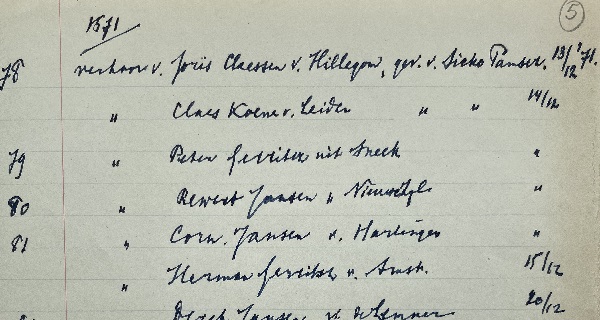 5
1571
78 verhoor v. Joris Claessen v. Hillegom, gev. v. Sicko 13/12 '71.
" Claes Koene v. Leiden " " 14/12
79 " Peter Gerritsz uit Sneek "
80 " Rewert Jansen "
81 " Corn. Jansen v. Harlingen "
" Herman Gerritsz v. Amst. 15/12
Jansen 20/12